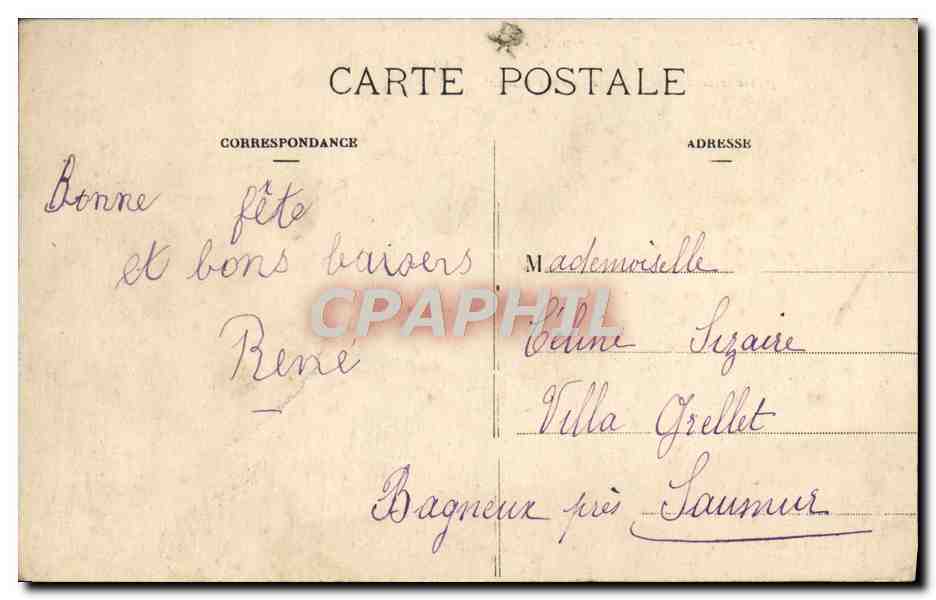 CARTE POSTALE
CORRESPONDANCE
ADRESSE
Bonne fête
et bons baisers
René
Mademoiselle
Céline Sizaire
Villa Grellet
Bagneux près Saumur
CPAPHIL